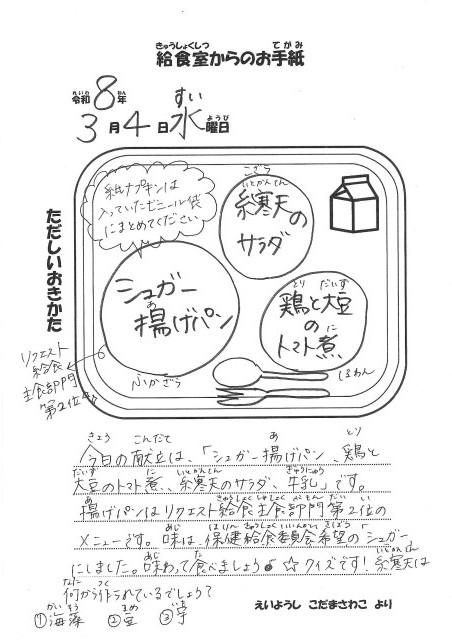 きゅうしょくしつ てがみ
給食室からのお手紙
れいわ ねん すい
令和8年
ようび
3月4日水曜日
ただしいおきかた
紙ナプキンは
入っていたビニール袋
にまとめてください
こざら
いとかんてん
糸寒天の
サラダ
あ
シュガー
揚げパン
とり だいず
鶏と大豆
の に
トマト煮
ふかざら
しるわん
リクエスト
給食
主食部門
第2位
きょう こんだて あ とり
今日の献立は、「シュガー揚げパン、鶏と
だいず に いとかんてん ぎゅうにゅう
大豆のトマト煮、糸寒天のサラダ、牛乳」です。
あ きゅうしょく しゅしょく ぶもん だい い
揚げパンはリクエスト給食主食部門第2位の
あじ ほけんきゅうしょくいいんかい きぼう
メニューです。味は、保健給食委員会希望のシュガー
あじ た いとかんてん
にしました。味わって食べましょう♪ ☆クイズです!糸寒天は
なに つく
何から作られているでしょう?
かいそう まめ いも
①海藻 ②豆 ③芋
えいようし こだまさわこ より